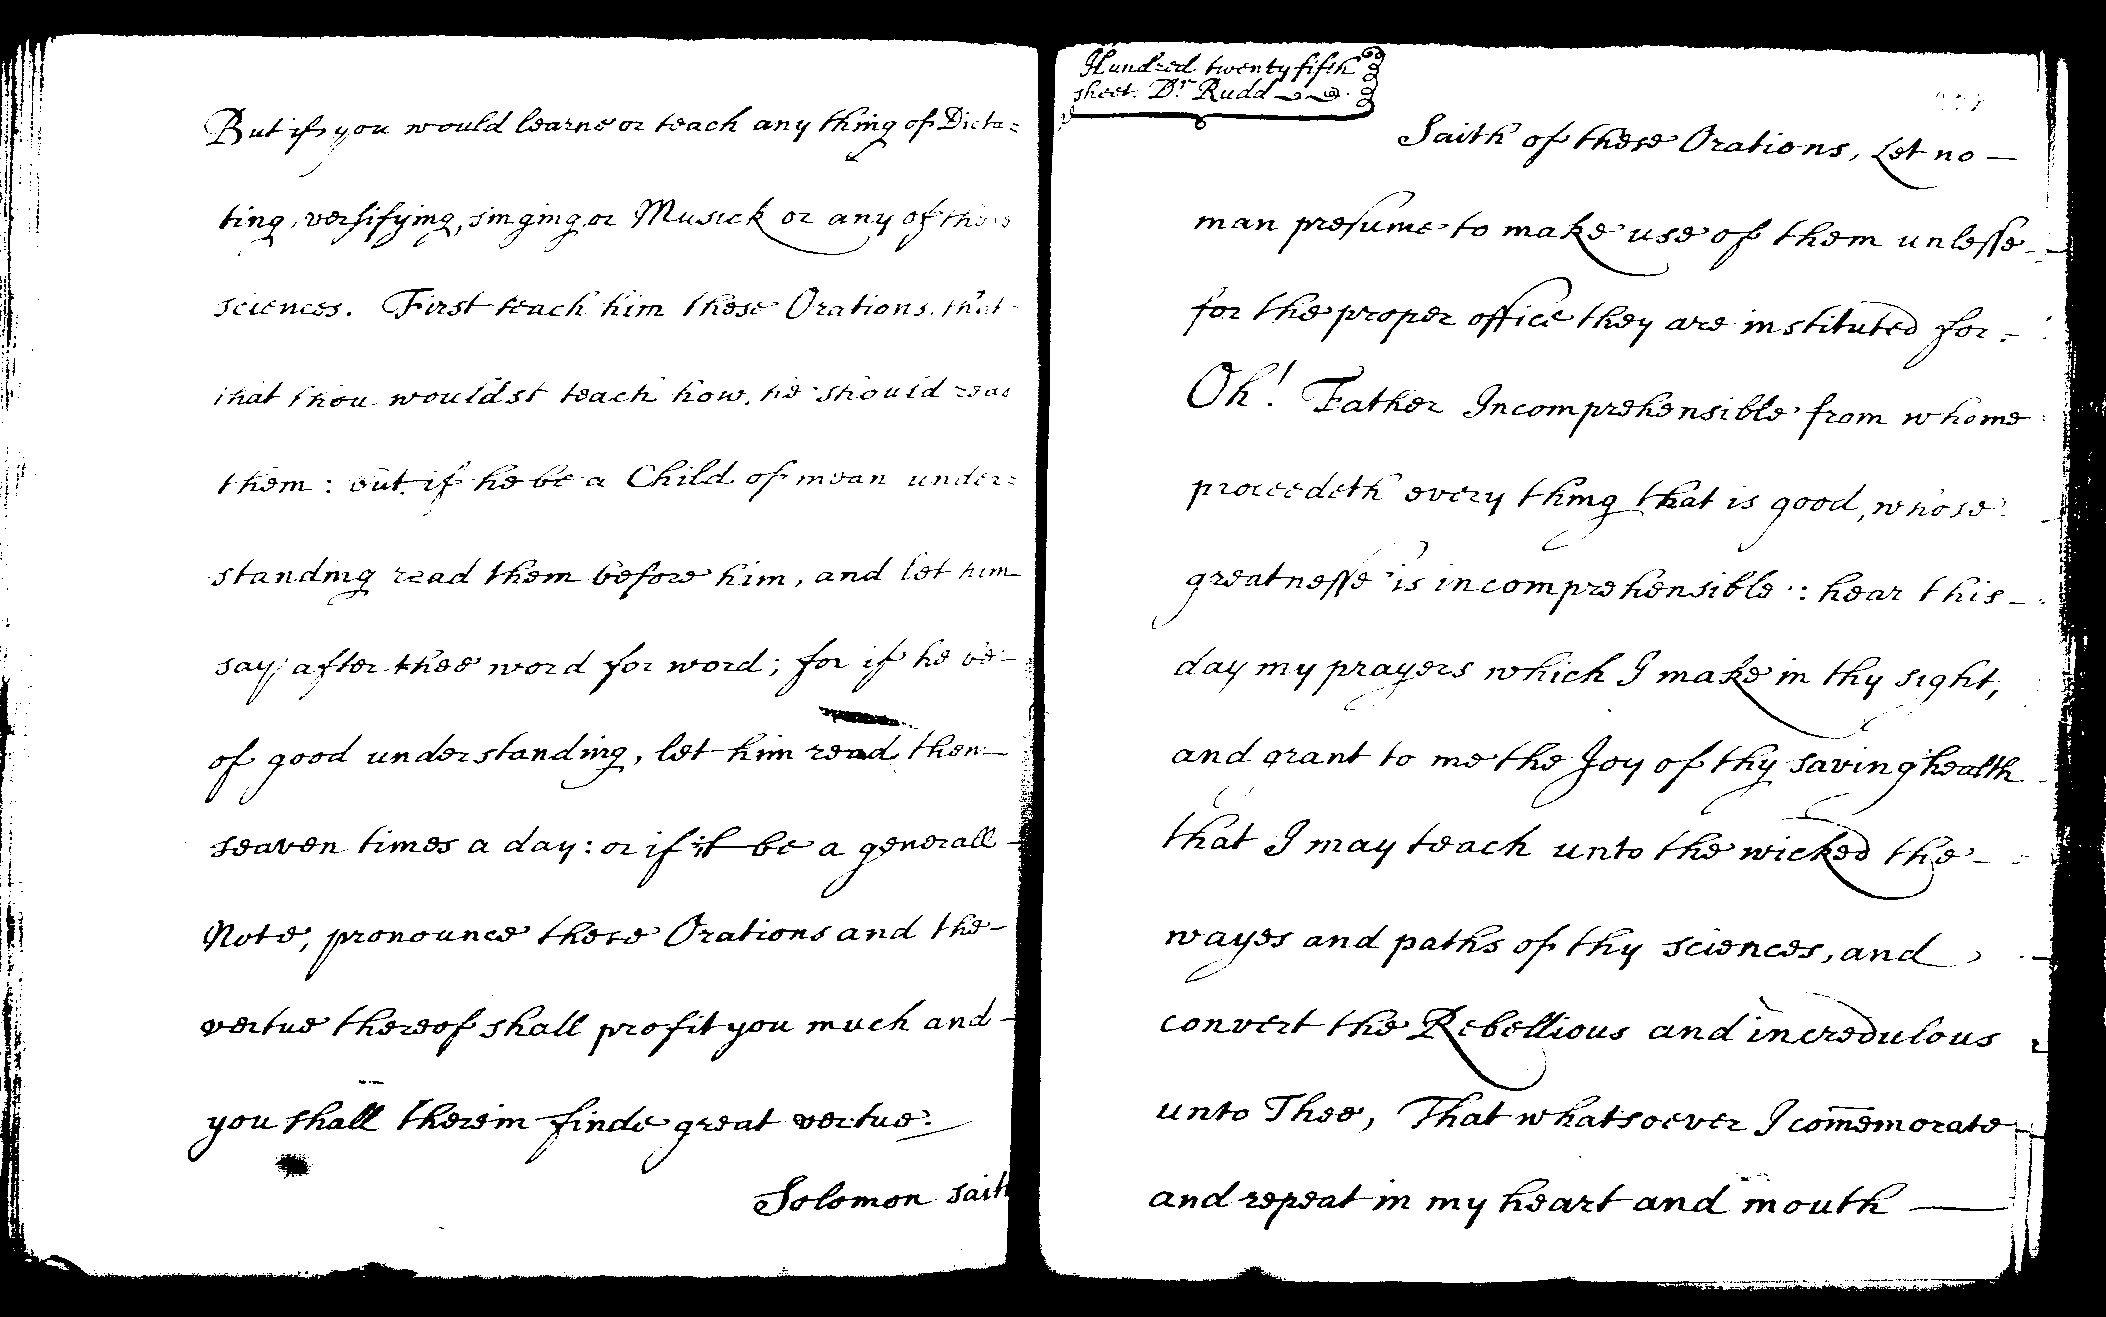 But if you would learne or teach any thing of Dicta=
ting, versifying, singing or Musick or any of these
sciences. First teach him these Orations, that
that thou wouldst teach how, he should read
them: but if he be a Child of mean under=
standing read them before him, and let him
say after thee word for word; for if he be
of good understanding, let him read them
seaven times a day: or if it be a generall
Note, pronounce these Orations and the
vertue thereof shall profit you much and
you shall therein finde great vertue.
Solomon saith
Hundred twenty fifth
sheet. Dr Rudd
Saith of these Orations, Let no
man presume to make use of them unlesse
for the proper office they are instituted for.
Oh! Father Incomprehensible from whome
proceedeth every thing that is good, whose
greatnesse is incomprehensible: hear this
day my prayers which I make in thy sight,
and grant to me the Joy of thy saving health
that I may teach unto the wicked the
wayes and paths of thy sciences, and
convert the Rebellious and incredulous
unto Thee, That whatsoever I com̄emorate
and repeat in my heart and mouth